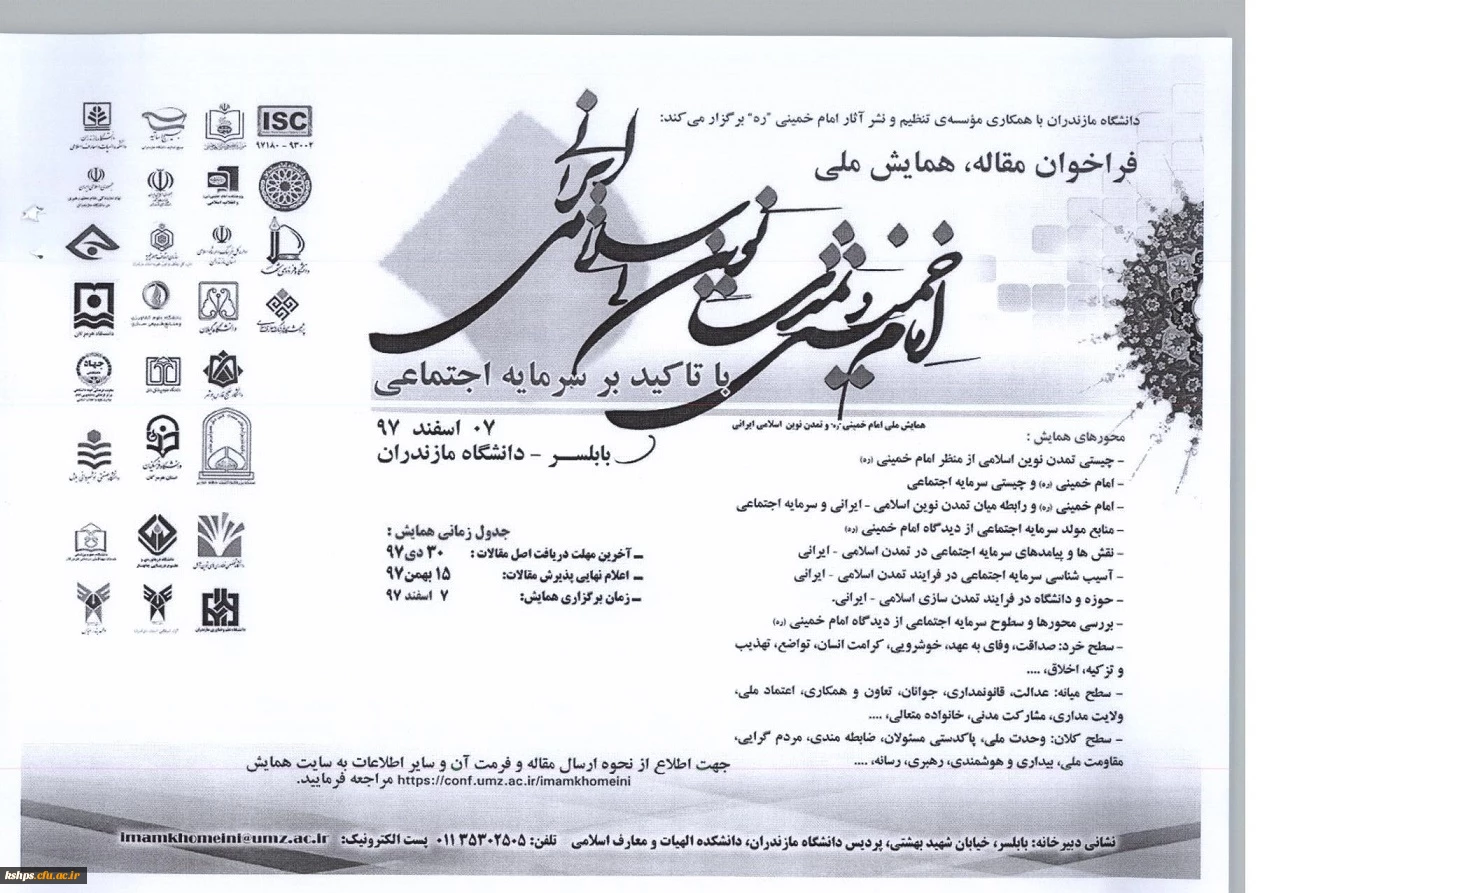 دانشگاه مازندران با همکاری مؤسسه‌ی تنظیم و نشر آثار امام خمینی "ره" برگزار می‌کند:
فراخوان مقاله، همایش ملی
امام خمینی و تمدن نوین اسلامی ایرانی
با تاکید بر سرمایه اجتماعی
همایش ملی امام خمینی "ره" و تمدن نوین اسلامی ایرانی
۰۷ اسفند ۹۷
بابلسر - دانشگاه مازندران
محورهای همایش :
- چیستی تمدن نوین اسلامی از منظر امام خمینی (ره)
- امام خمینی (ره) و چیستی سرمایه اجتماعی
- امام خمینی (ره) و رابطه میان تمدن نوین اسلامی - ایرانی و سرمایه اجتماعی
- منابع مولد سرمایه اجتماعی از دیدگاه امام خمینی (ره)
- نقش ها و پیامدهای سرمایه اجتماعی در تمدن اسلامی - ایرانی
- آسیب شناسی سرمایه اجتماعی در فرایند تمدن اسلامی - ایرانی
- حوزه و دانشگاه در فرایند تمدن سازی اسلامی - ایرانی.
- بررسی محورها و سطوح سرمایه اجتماعی از دیدگاه امام خمینی (ره)
- سطح خرد: صداقت، وفای به عهد، خوشرویی، کرامت انسان، تواضع، تهذیب
و تزکیه، اخلاق، ....
- سطح میانه: عدالت، قانونمداری، جوانان، تعاون و همکاری، اعتماد ملی،
ولایت مداری، مشارکت مدنی، خانواده متعالی، ....
- سطح کلان: وحدت ملی، پاکدستی مسئولان، ضابطه مندی، مردم گرایی،
مقاومت ملی، بیداری و هوشمندی، رهبری، رسانه، ....
جدول زمانی همایش :
ـ آخرین مهلت دریافت اصل مقالات : ۳۰ دی۹۷
ـ اعلام نهایی پذیرش مقالات: ۱۵ بهمن۹۷
ـ زمان برگزاری همایش: ۷ اسفند ۹۷
ISC
۹۷۱۸۰ - ۹۳۰۰۲
دانشگاه گیلان
دانشگاه هرمزگان
جهاد
جهت اطلاع از نحوه ارسال مقاله و فرمت آن و سایر اطلاعات به سایت همایش
https://conf.umz.ac.ir/imamkhomeini مراجعه فرمایید.
نشانی دبیرخانه: بابلسر، خیابان شهید بهشتی، پردیس دانشگاه مازندران، دانشکده الهیات و معارف اسلامی تلفن: ۰۱۱۳۵۳۰۲۵۰۵ پست الکترونیک: imamkhomeini@umz.ac.ir
kshps.cfu.ac.ir